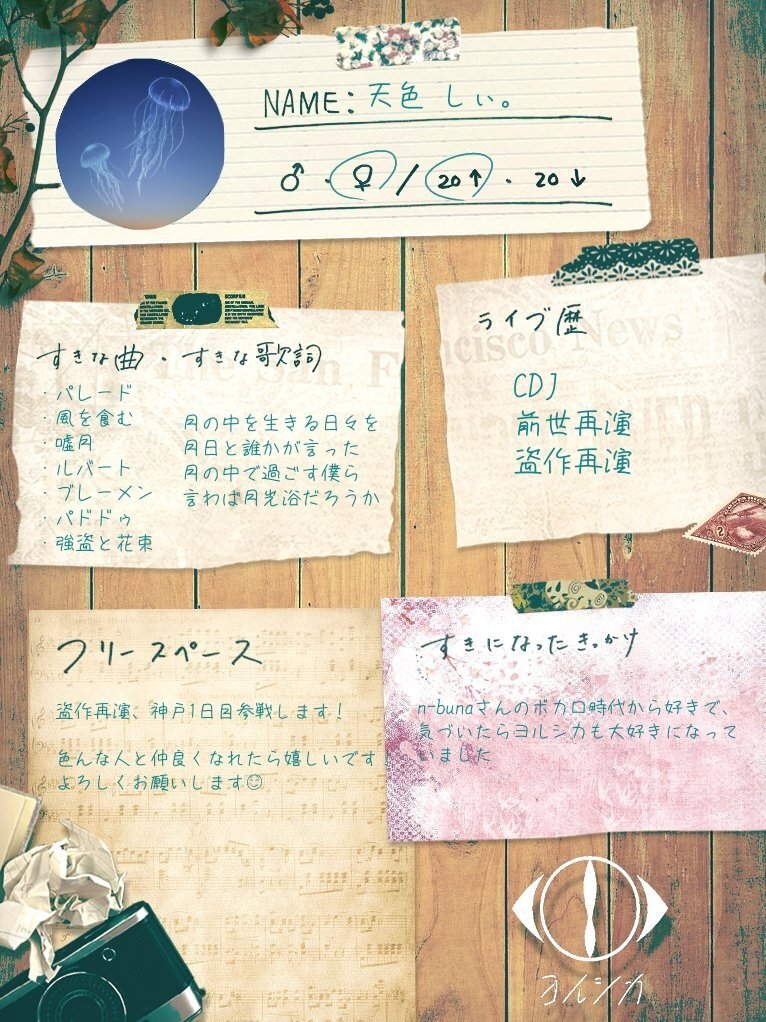 NAME: 天色 しい。
♂ ・ ♀ / 20↑ ・ 20↓
すきな曲・すきな歌詞
・パレード
・風を食む
・嘘月
・ルバート
・ブレーメン
・パドドゥ
・強盗と花束
月の中を生きる日々を
月日と誰かが言った
月の中で過ごす僕ら
言わば月光浴だろうか
ライブ歴
CDJ
前世再演
盗作再演
フリースペース
盗作再演、神戸1日目参戦します！
色んな人と仲良くなれたら嬉しいです！
よろしくお願いします☺
すきになったきっかけ
n-bunaさんのボカロ時代から好きで、
気づいたらヨルシカも大好きになって
いました
ヨルシカ